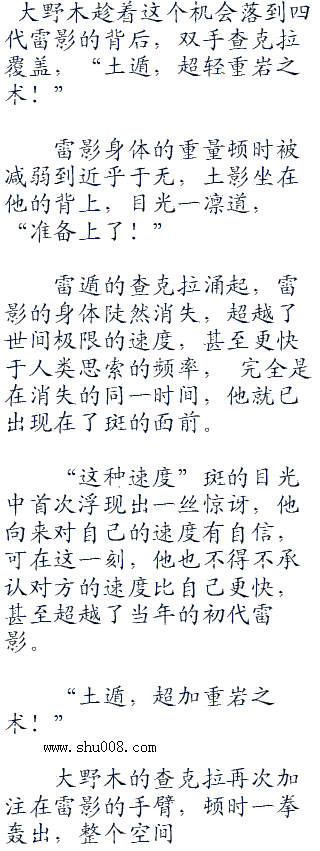 大野木趁着这个机会落到四
代雷影的背后，双手查克拉
覆盖，“土遁，超轻重岩之
术！”
雷影身体的重量顿时被
减弱到近乎于无，土影坐在
他的背上，目光一凛道，
“准备上了！”
雷遁的查克拉涌起，雷
影的身体陡然消失，超越了
世间极限的速度，甚至更快
于人类思索的频率， 完全是
在消失的同一时间，他就已
出现在了斑的面前。
“这种速度”斑的目光
中首次浮现出一丝惊讶，他
向来对自己的速度有自信，
可在这一刻，他也不得不承
认对方的速度比自己更快，
甚至超越了当年的初代雷
影。
“土遁，超加重岩之
术！”
www.shu008.com
大野木的查克拉再次加
注在雷影的手臂，顿时一拳
轰出，整个空间